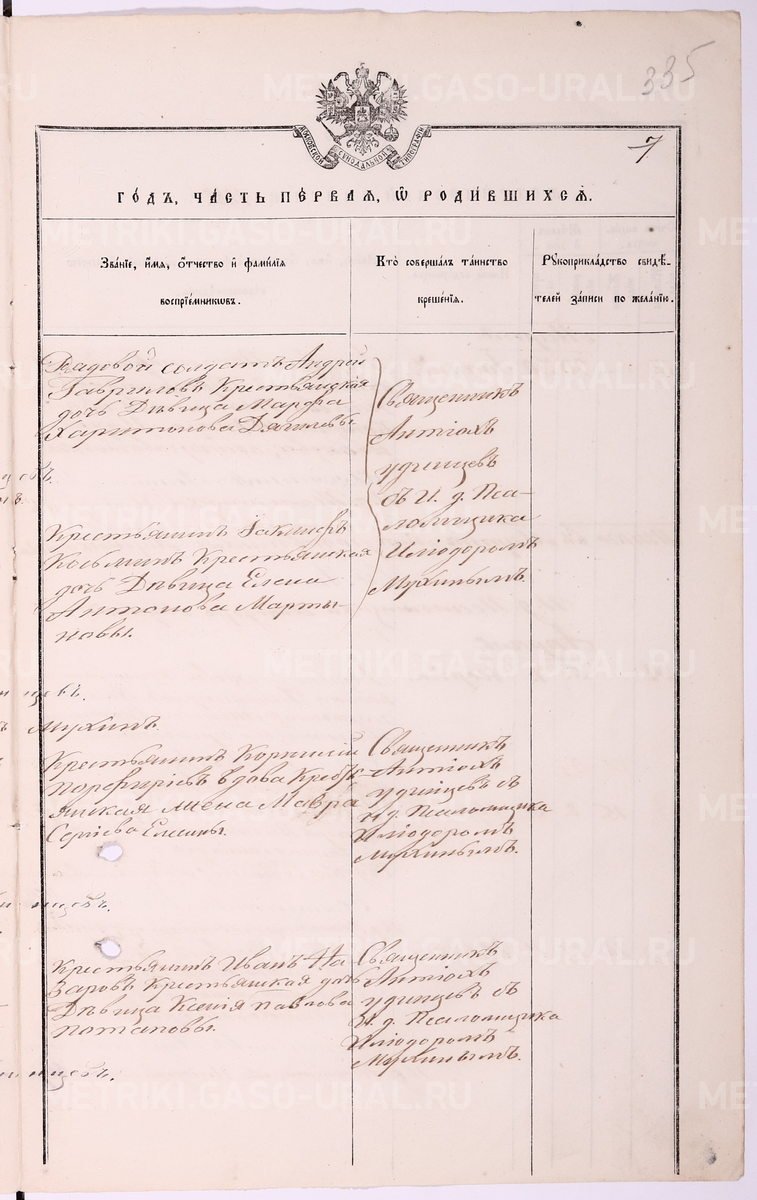 335
7
МОСКОВСКОЙ СѴНОДАЛЬНОЙ ТИПОГРАФІИ
ГО́ДЪ, ЧА́СТЬ ПЕ́РВАЯ, Ѿ РОДИ́ВШИХСЯ.
Зва́ніе, и҆́мя, ѻ҆́тчество и҆ фами́лія
воспріе́мниковъ.
Кто̀ соверша́лъ та́инство
креще́нія.
Рꙋкоприкла́дство свидѣ́-
телей за́писи по жела́нію.
Рядовой солдатъ Андрей
Гавриловъ Крестьянская
дочь Дѣвица Марфа
Харитонова
Священникъ
Антіохъ
Удинцевъ
съ И. д. Пса-
ломщика
Иліодоромъ
Мухинымъ.
Крестьянинъ
Козьминъ Крестьянская
дочь Дѣвица Елена
Антонова Марты-
новы.
Мухинъ.
Крестьянинъ Корнилій
Порфиріевъ вдова Кресть-
янская жена Мавра
Сергіева
Священникъ
Антіохъ
Удинцевъ съ
И д. Псаломщика
Иліодоромъ
Мухинымъ.
Крестьянинъ Иванъ На-
заровъ Крестьянская дочь
Дѣвица Ксенія Павлова
Потаповы.
Священникъ
Антіохъ
Удинцевъ съ
И. д. Псаломщика
Иліодоромъ
Мухинымъ.
METRIKI.GASO-URAL.RU